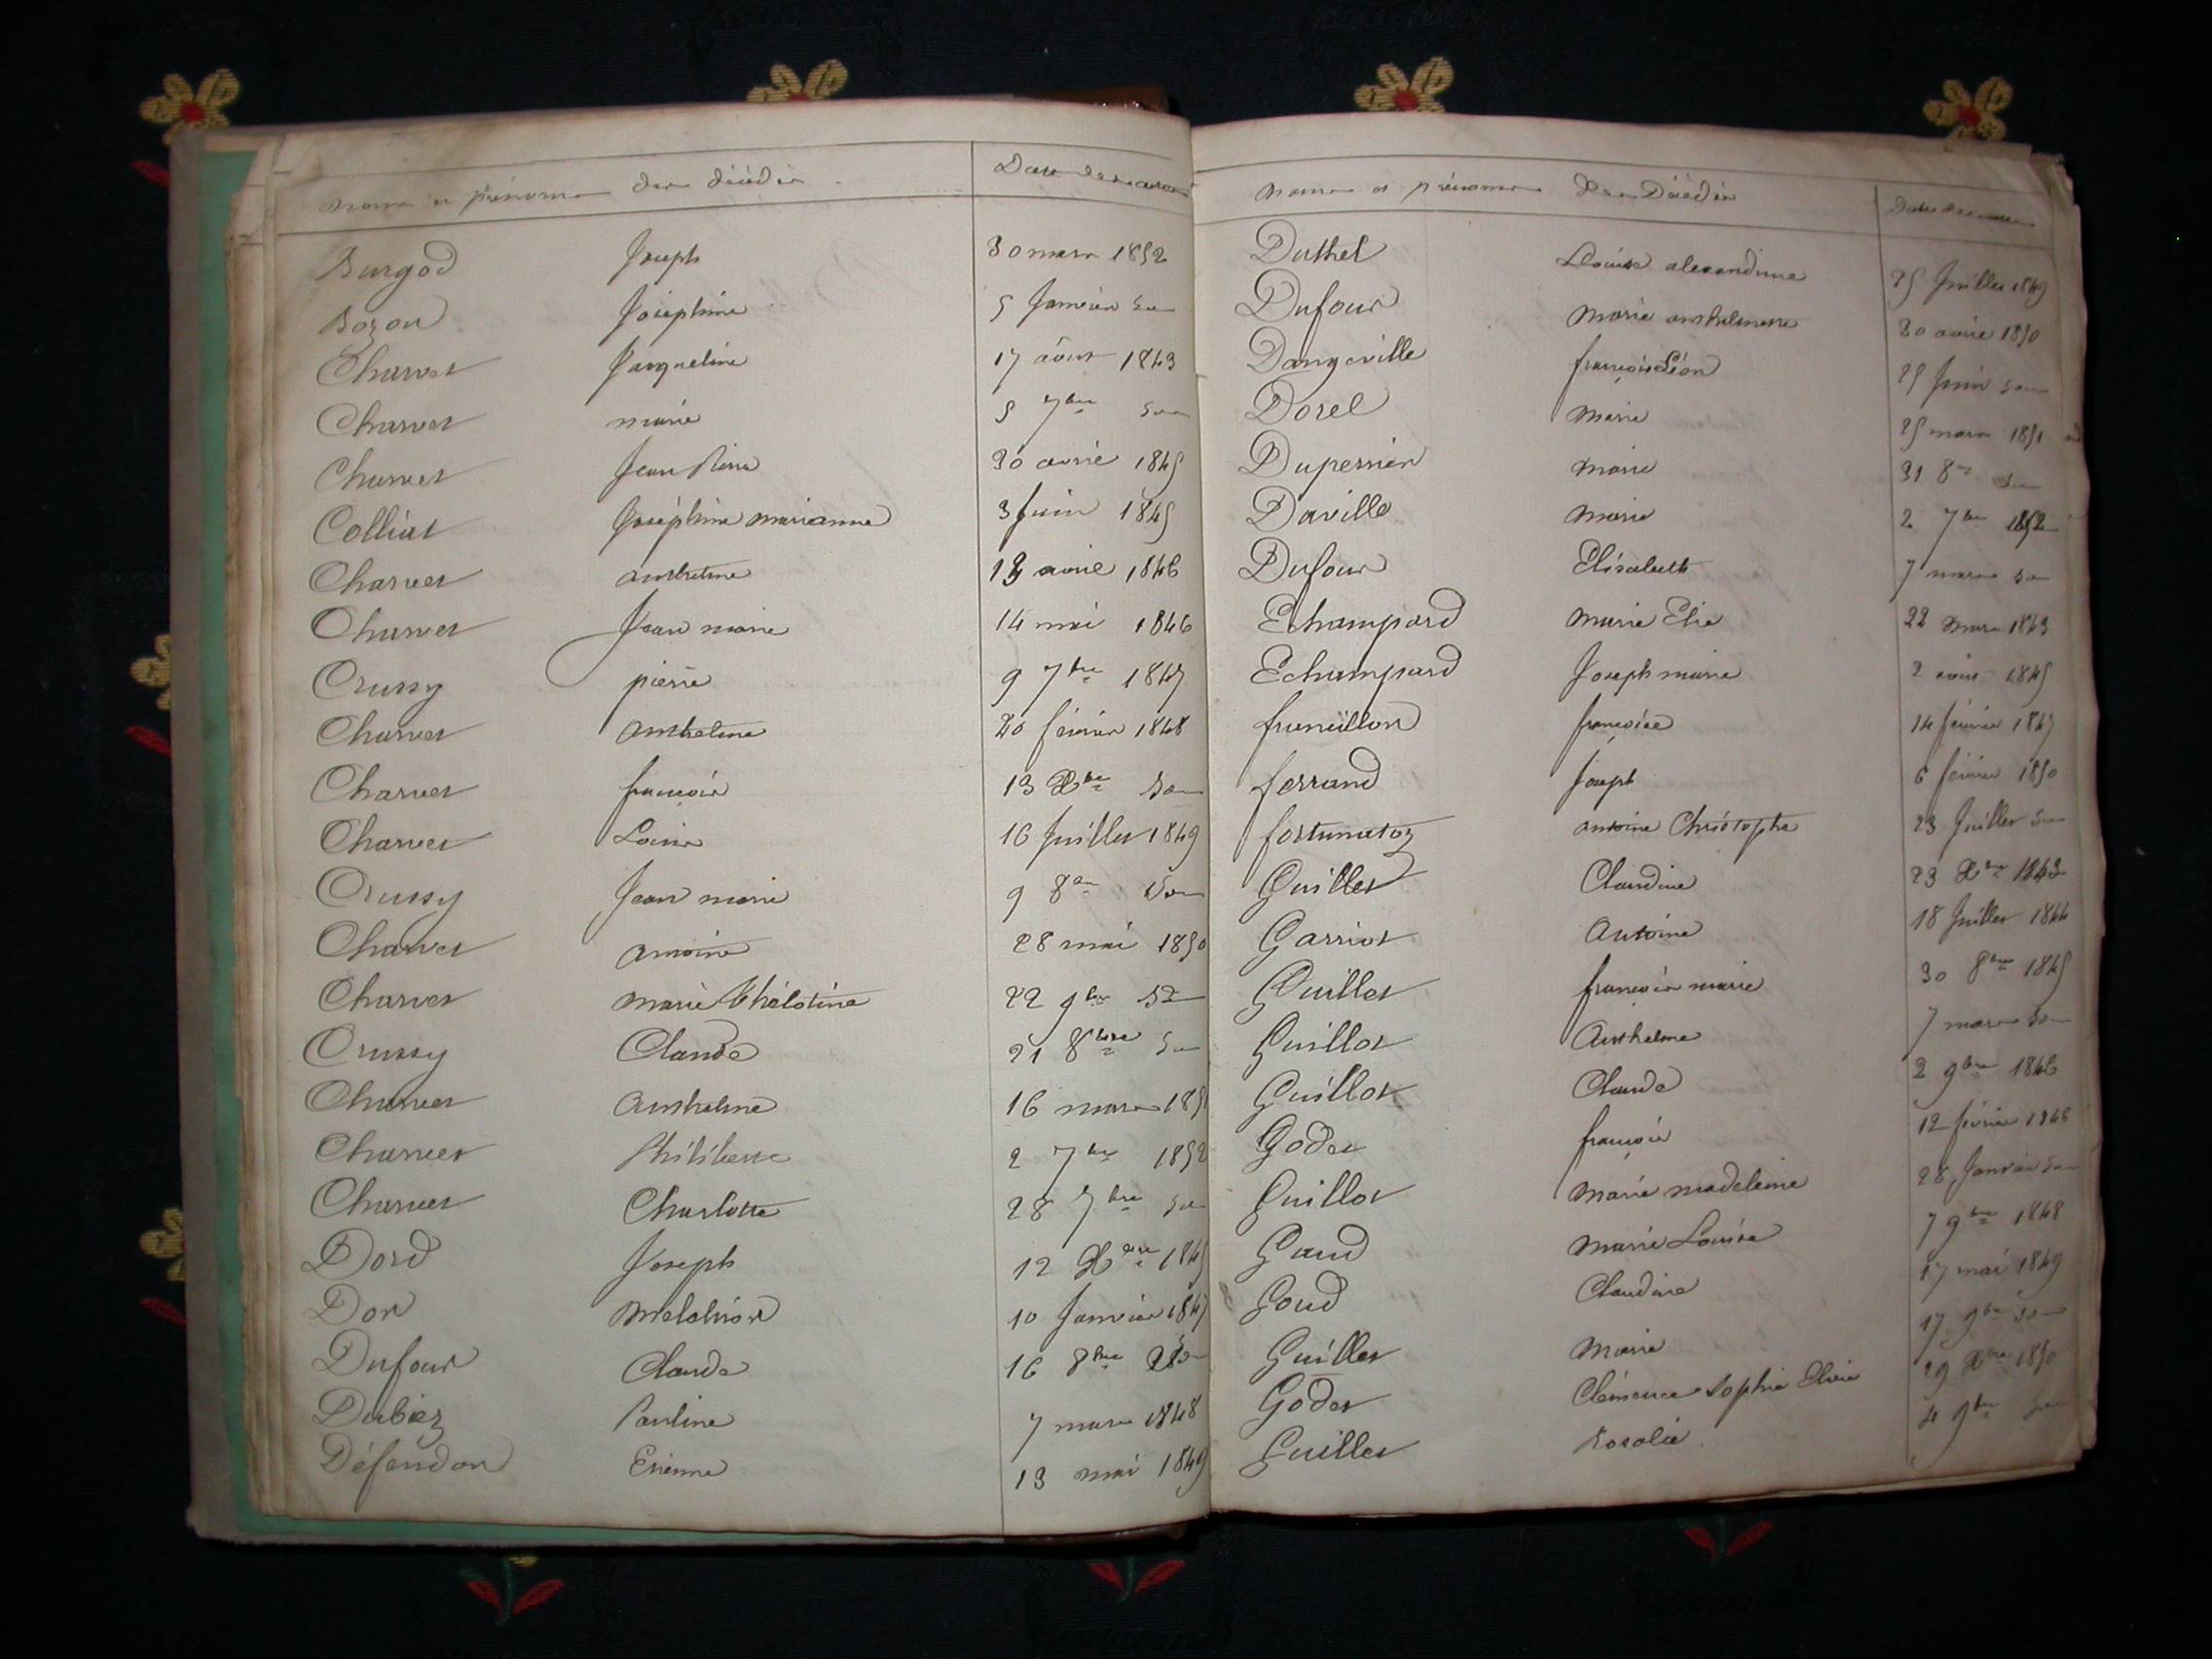 noms et prénoms des décédés Date des actes
Burgod Joseph 30 mars 1852
Bozon Joséphine 5 Janvier
Charvet Jacqueline 17 août 1843
Charvet marie 5 7bre
Charvet Jean Pierre 30 avril 1845
Colliat Joséphine marianne 3 Juin 1845
Charvet anthelme avril 1846
Charvet Jean marie 14 mai 1846
Crussy pierre 9 7bre 1847
Charvet anthelme 20 février 1848
Charvet françois 13 Xbre
Charvet Louise 16 Juillet 1849
Crussy Jean marie 9 8bre
Charvet antoine 28 mai 1850
Charvet marie 22 9bre
Crussy Claude 21 8bre
Charvet anthelme 16 mars
Charvet Philiberte 2 7bre 1852
Charvet Charlotte 28 7bre
Dord Joseph 12 Xbre 1845
Don Melchior 10 Janvier 1847
Dufour Claude 16 8bre
Dubiez Pauline 7 mars 1848
Défendon Etienne 13 mai 1849
noms et prénoms des Décédés Date des actes
Duthel Louise alexandrine 25 Juillet 1849
Dufour marie anthelmette 30 avril 1850
Dangeville françois Léon 25 Juin
Dorel marie 25 mars 1851
Duperrier marie 31 8bre
Daville marie 2 7bre 1852
Dufour Elisabeth 7 mars
Echampard marie Elie 22 mars 1843
Echampard Joseph marie 2 août 1845
françoise 14 février 1847
ferrand Joseph 6 février 1850
fortunatoz antoine Christophe 23 Juillet
Guillet Claudine 23 Xbre 1843
Garriot Antoine 18 Juillet 1844
Guillot françois marie 30 8bre 1845
Guillot Anthelme 7 mars
Guillot Claude 2 9bre 1846
Godet françois 12 février 1846
Guillot marie madeleine 28 Janvier
Gaud marie Louise 7 9bre 1848
Goud Claudine 17 mai 1849
Guillet Marie 17 9bre
Godet Clémence Sophie 29 Xbre 1850
Guillet Rosalie 4 9bre